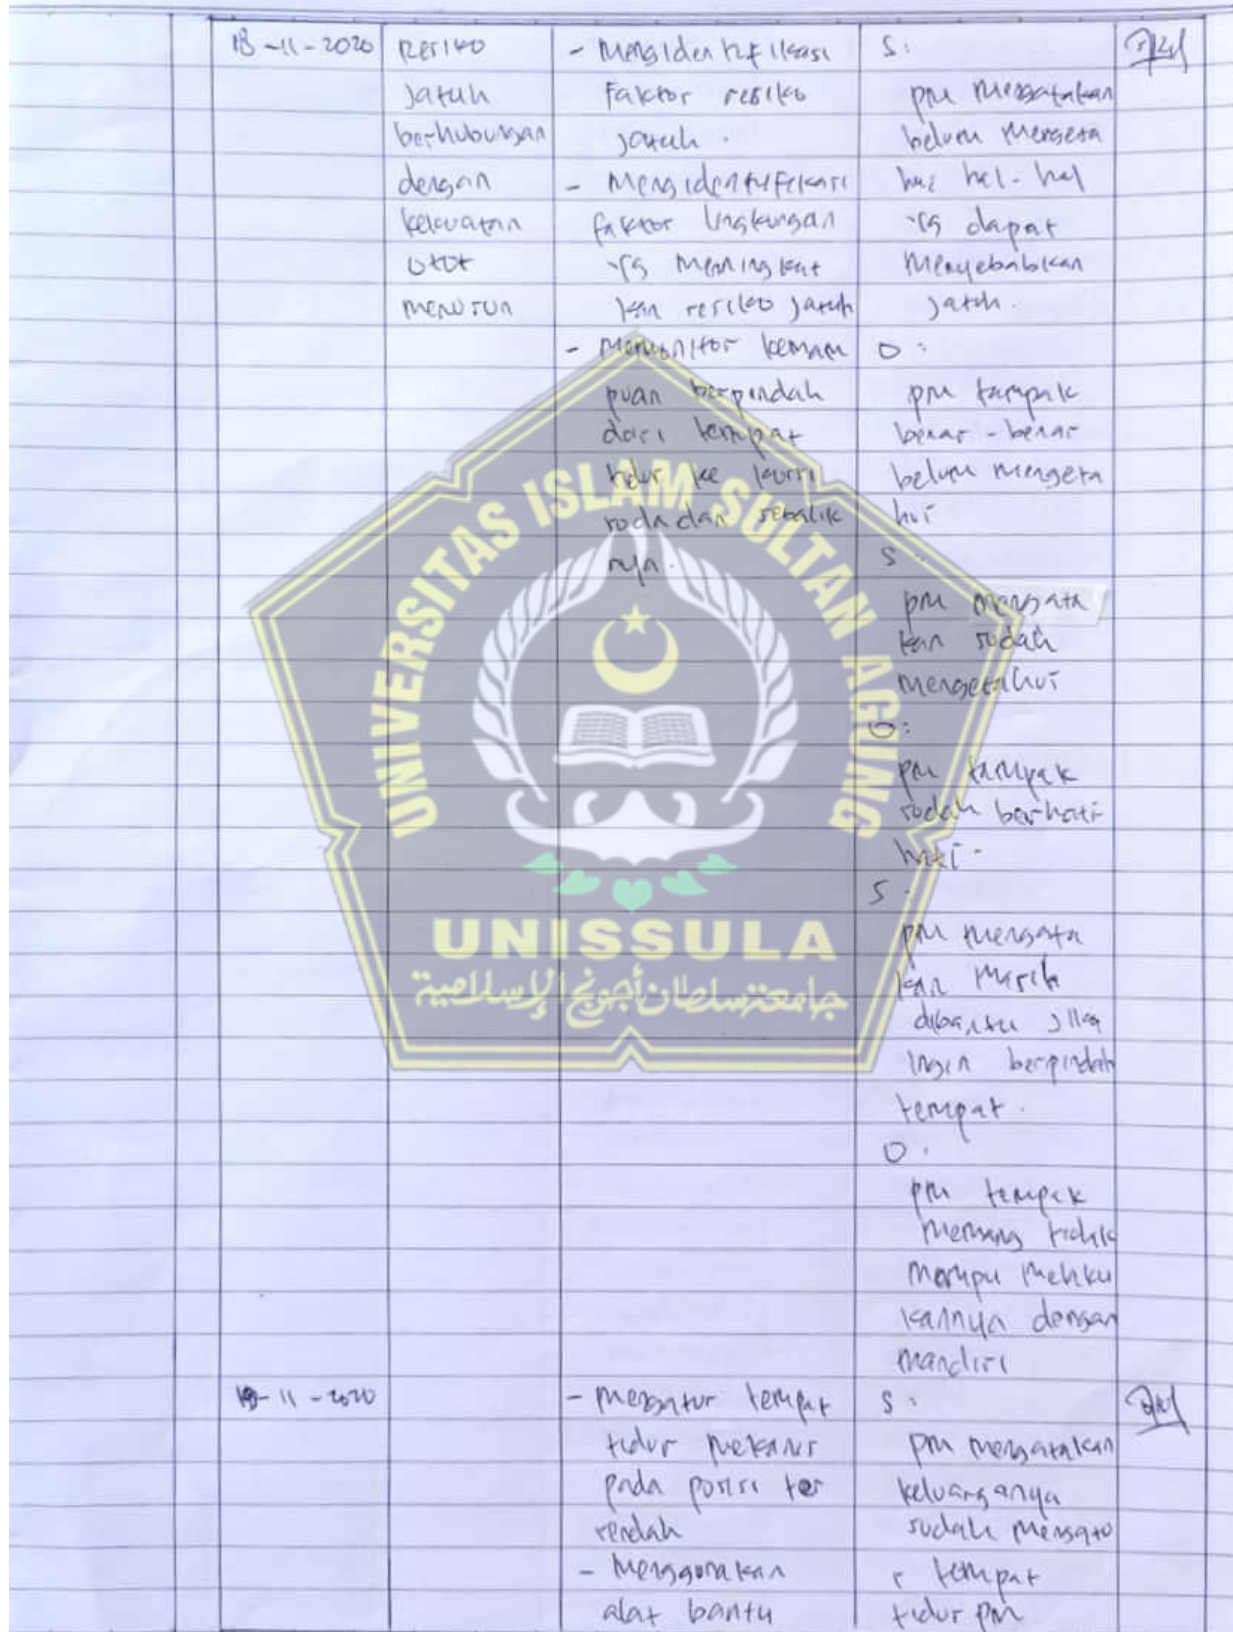 18-11-2020
Resiko
Jatuh
berhubungan
dengan
kekuatan
otot
menurun
- Mengidentifikasi
Faktor resiko
jatuh.
- Mengidentifikasi
faktor lingkungan
yg meningkat
kan resiko jatuh
- Memonitor kemam
puan berpindah
dari tempat
tidur ke kursi
roda dan sebalik
nya.
S:
pm mengatakan
belum mengeta
hui hal-hal
yg dapat
menyebabkan
jatuh.
O:
pm tampak
benar-benar
belum mengeta
hui
S:
pm mengata
kan sudah
mengetahui
O:
pm tampak
sudah berhati
hati-
S:
pm mengata
kan masih
dibantu jika
ingin berpindah
tempat.
O:
pm tampak
memang tidak
mampu melaku
kannya dengan
mandiri
19-11-2020
- mengatur tempat
tidur mekanis
pada posisi ter
rendah
- Menggunakan
alat bantu
S:
pm mengatakan
keluarganya
sudah mengatu
r tempat
tidur pm
UNIVERSITAS ISLAM SULTAN AGUNG
UNISSULA
جامعة سلطان أجونج الإسلامية